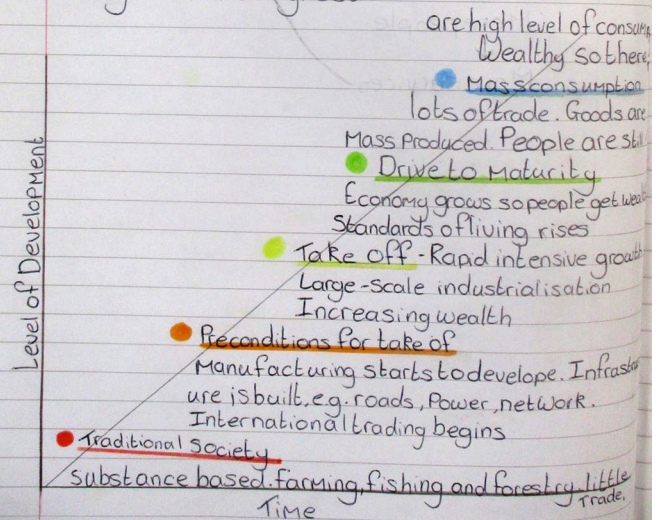 are high level of
Wealthy so there
Mass consumption
lots of trade. Goods are
Mass Produced. People are still
Drive to Maturity
Economy grows so people get
Standards of living rises
Take off - Rapid intensive growth
Large-scale industrialisation
Increasing wealth
Preconditions for take of
Manufacturing starts to develope.
ure is built, e.g. roads, Power, network.
International trading begins
Traditional Society
Substance based. farming, fishing and forestry. little
Trade.
Level of Development
Time